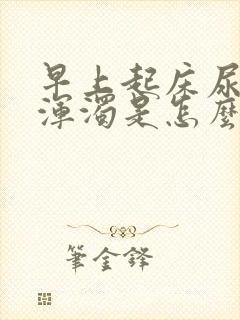 早上起床尿
渾濁是怎麼
筆金鋒